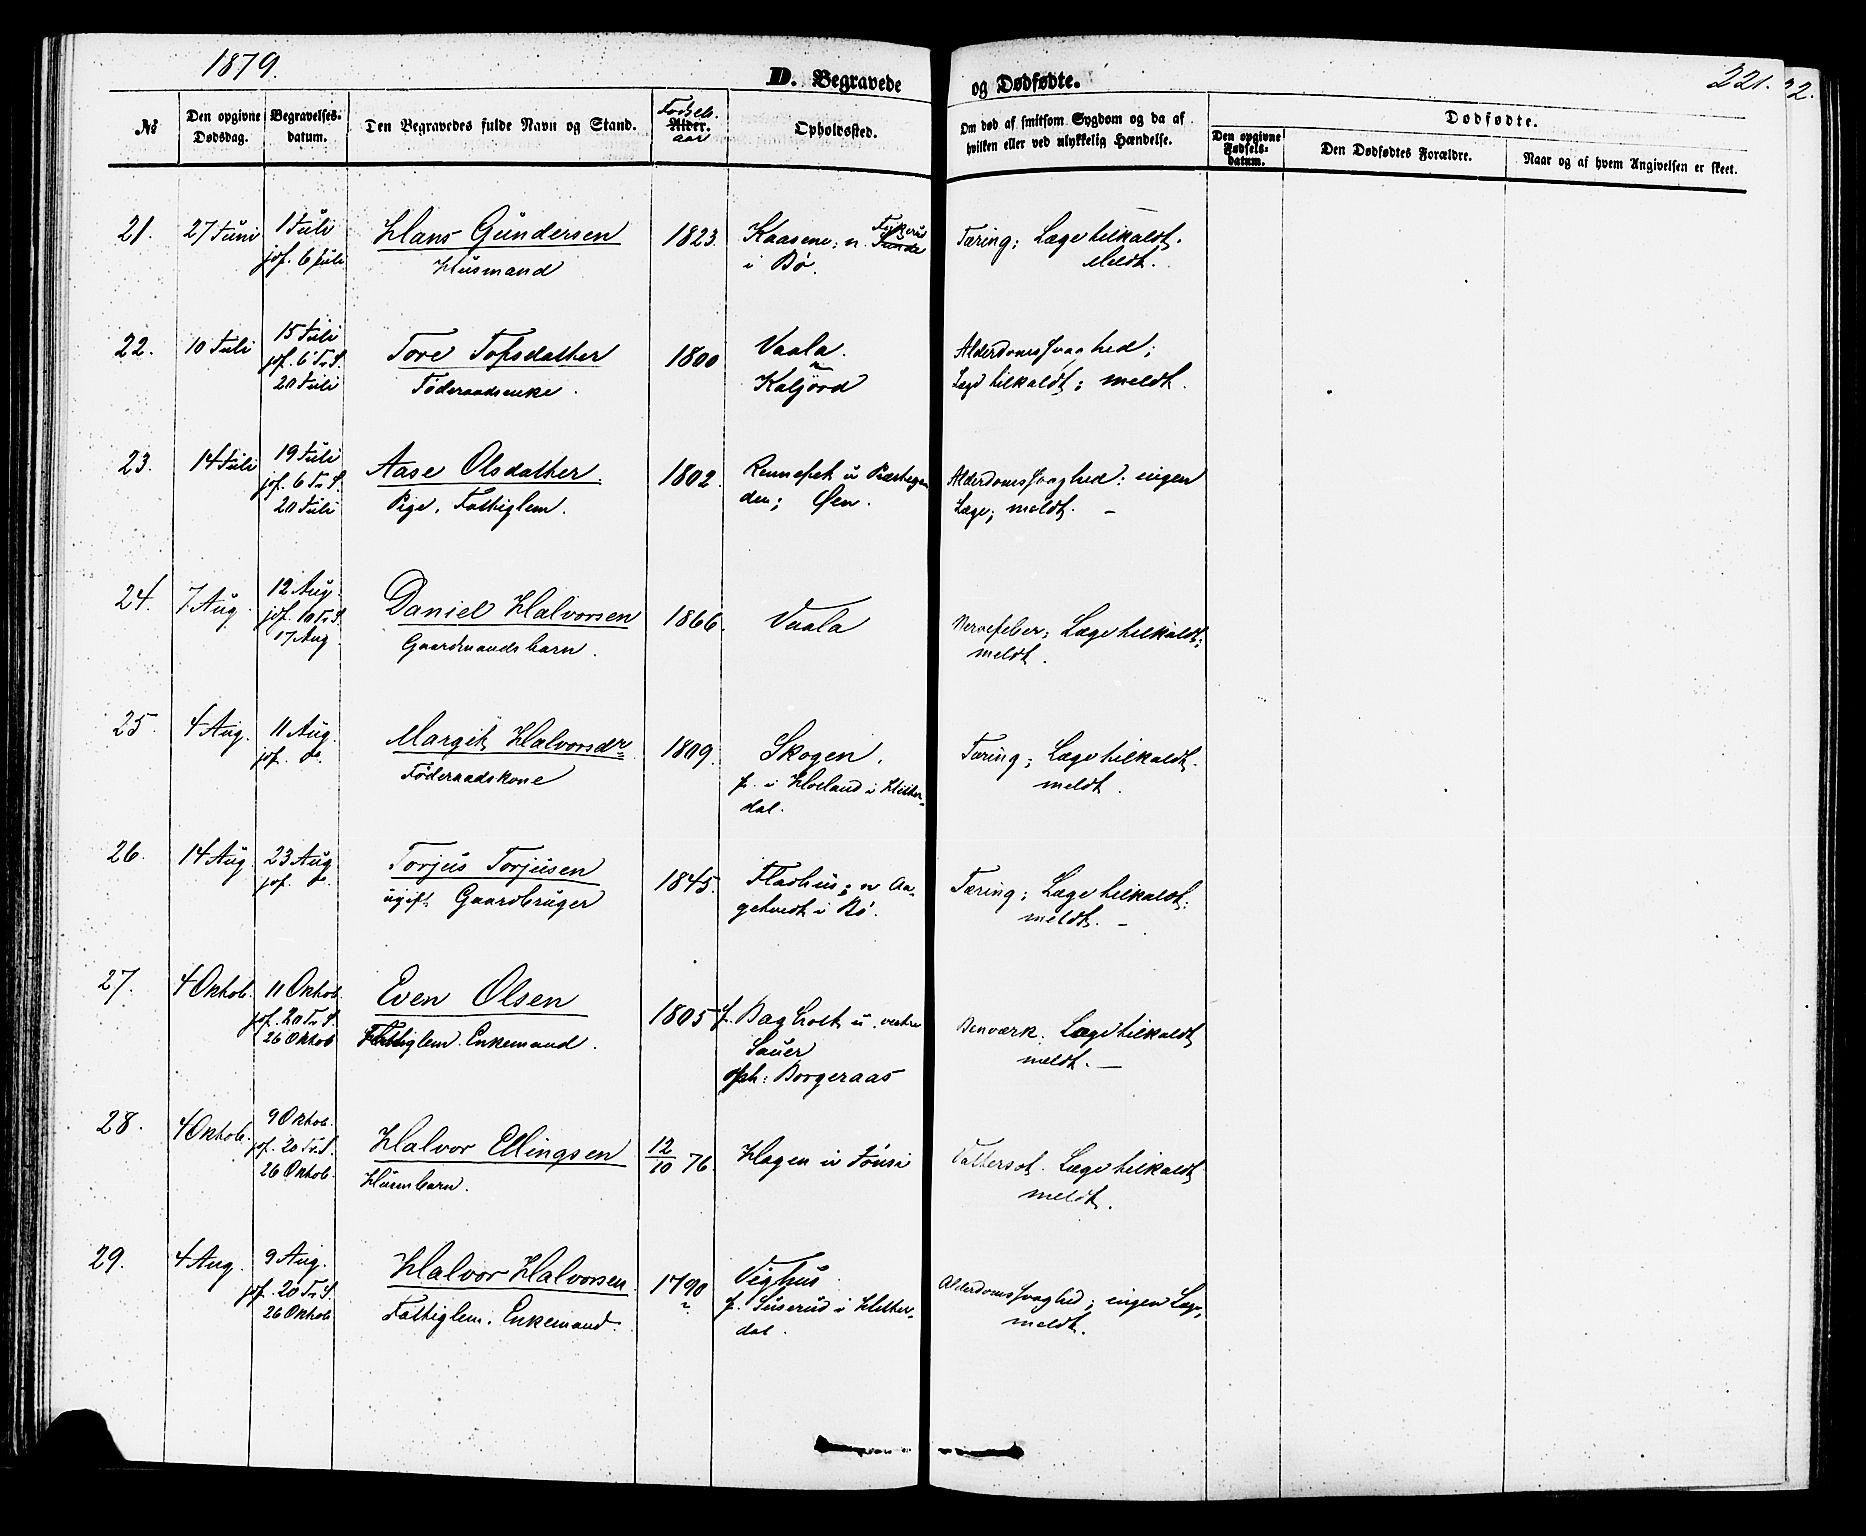 1879.
D. Begravede og Dødfødte.
221.
22.
№
Den opgivne Dødsdag.
Begravelses-datum.
Den Begravedes fulde Navn og Stand.
Fødsels-
Alder.
aar
Opholdssted.
Om død af smitsom Sygdom og da af hvilken eller ved ulykkelig Hændelse.
Dødfødte.
Den opgivne Fødsels-datum.
Den Dødfødtes Forældre.
Naar og af hvem Angivelsen er skeet.
21. 27 Juni 1 Juli Hans Gundersen 1823. Kaasene; n. Tæring; Læge tilkaldt.
jof. 6 Juli Husmand i Bø. Meldt.
22. 10 Juli 15 Juli Tore Tofsdatter 1800 Vaala. Alderdomssvaghed;
jof. 6 Tr. S. Føderaadsenke. Kaljord Læge tilkaldt; meldt.
20 Juli
23. 14 Juli 19 Juli Aase Olsdatter. 1802. u Præstegaar Alderdomssvaghed: ingen
jof. 6 Tr. S. Pige, Fattiglem. den; Øen. Læge; meldt. —
20 Juli
24. 7 Aug. 12 Aug. Daniel Halvorsen 1866. Vaala Nervefeber; Læge tilkaldt;
jof. 10 Tr. S. Gaardmandsbarn. meldt.
17 Aug
25. 4 Aug. 11 Aug. Margit Halvorsdr 1809. Skogen, Tæring; Læge tilkaldt.
jof. do. Føderaadskone f. i Hoeland i Hitter- meldt.
dal.
26. 14 Aug 23 Aug Torjus Torjusen 1845. Fladhus; n Aa- Tæring; Læge tilkaldt:
jof. do. ugift Gaardbruger getvedt i Bø. meldt. —
27. 4 Oktob. 11 Oktob. Even Olsen 1805 f. Bagholt u. vestre Benværk. Læge tilkaldt
jof. 20 Tr. S. Fattiglem. Enkemand. Sauer meldt. —
26 Oktob oph: Borgeraas
28. 4 Oktob. 9 Oktob. Halvor Ellingsen 12/10 76. Hagen u Tønsi Læge tilkaldt
jof. 20 Tr. S. Husmbarn. meldt.
26 Oktob.
29. 4 Aug. 9 Aug. Halvor Halvorsen 1790 Veghus Alderdomssvaghed; ingen Læge,
jof. 20 Tr. S. Fattiglem. Enkemand. f. Suserud i Hitter- meldt.
26 Oktob dal.